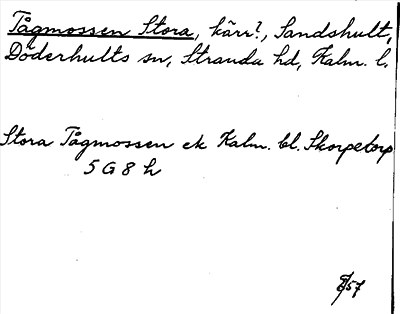 Tågmossen Stora, kärr?, Sandshult,
Döderhults sn, Stranda hd, Kalm. l.
Stora Tågmossen ek Kalm. bl. Skorpetorp
5 G 8 h
57